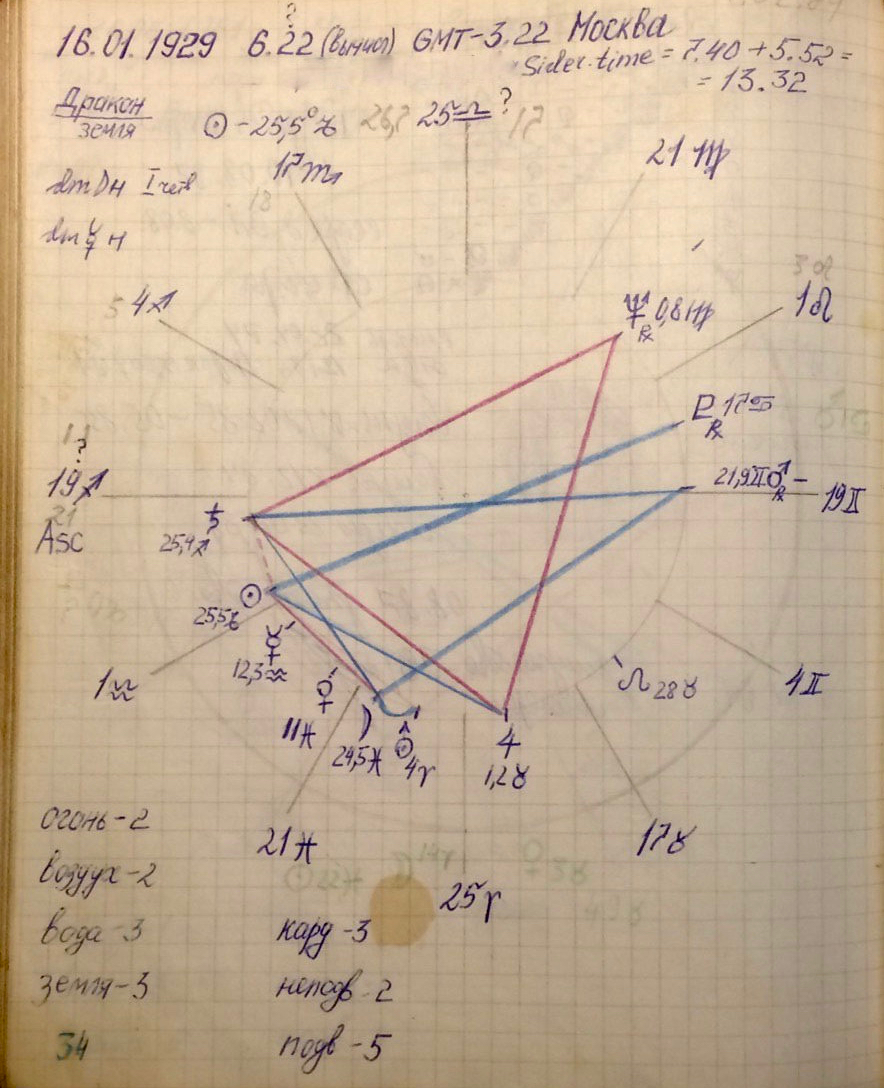 ?
16.01.1929 6.22 (вычисл) GMT-3.22 Москва
Sider.time = 7.40 + 5.52 =
= 13.32
Дракон
земля
☉ - 25,5°♑ 26,? 25♎ ? 17
17♏ 21♍
18
I
5 4♐ 3♌
1♌
♆ ℞ 0,8♍
♇ ℞ 17♋
?
19♐
21
Asc
21,9♊ ♂ ℞ - 19♊
♄
25,9♐
☉
25,5♑
☿
12,3♒
1♒
♀
11♓
☽
24,5♓
♅
4♈
♃
1,2♉
☊ 28♉
4♊
21♓ 17♉
25♈
огонь - 2
воздух - 2
вода - 3 кард - 3
земля - 3 неподв - 2
34 подв - 5